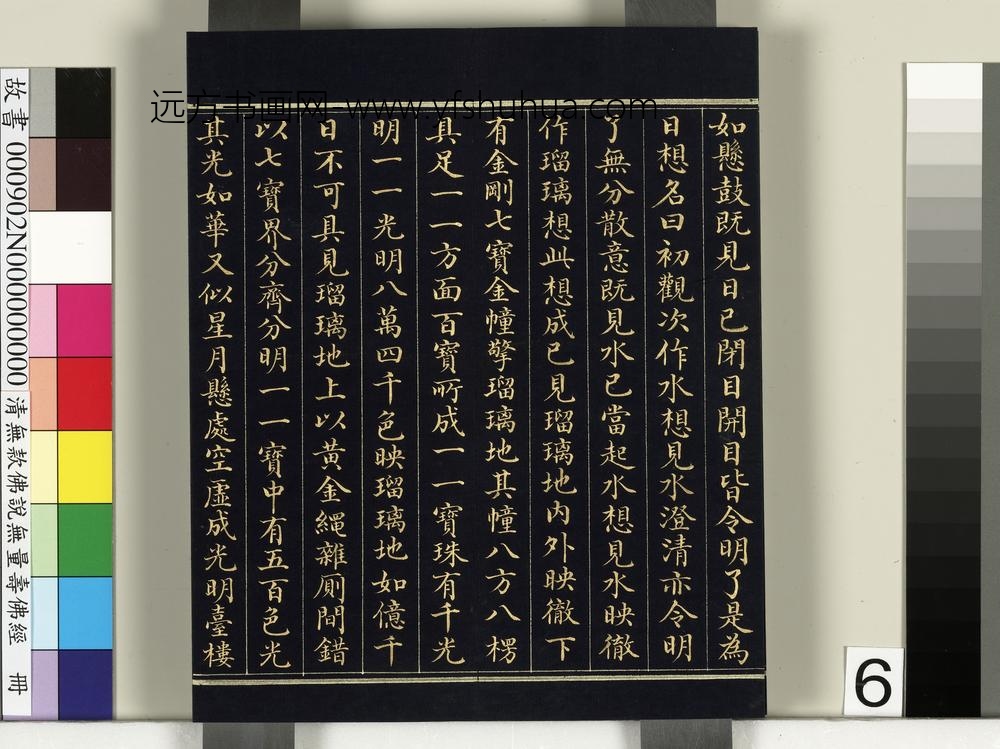 远方书画网 www.yfshuhua.com
如懸鼓既見日已閉目開目皆令明了是為
日想名曰初觀次作水想見水澄清亦令明
了無分散意既見水已當起水想見水映徹
作瑠璃想此想成已見瑠璃地內外映徹下
有金剛七寶金幢擎瑠璃地其幢八方八楞
具足一一方面百寶所成一一寶珠有千光
明一一光明八萬四千色映瑠璃地如億千
日不可具見瑠璃地上以黃金繩雜廁間錯
以七寶界分齊分明一一寶中有五百色光
其光如華又似星月懸處空虛成光明臺樓
故書 000902N000000000 清無款佛說無量壽佛經 冊
6